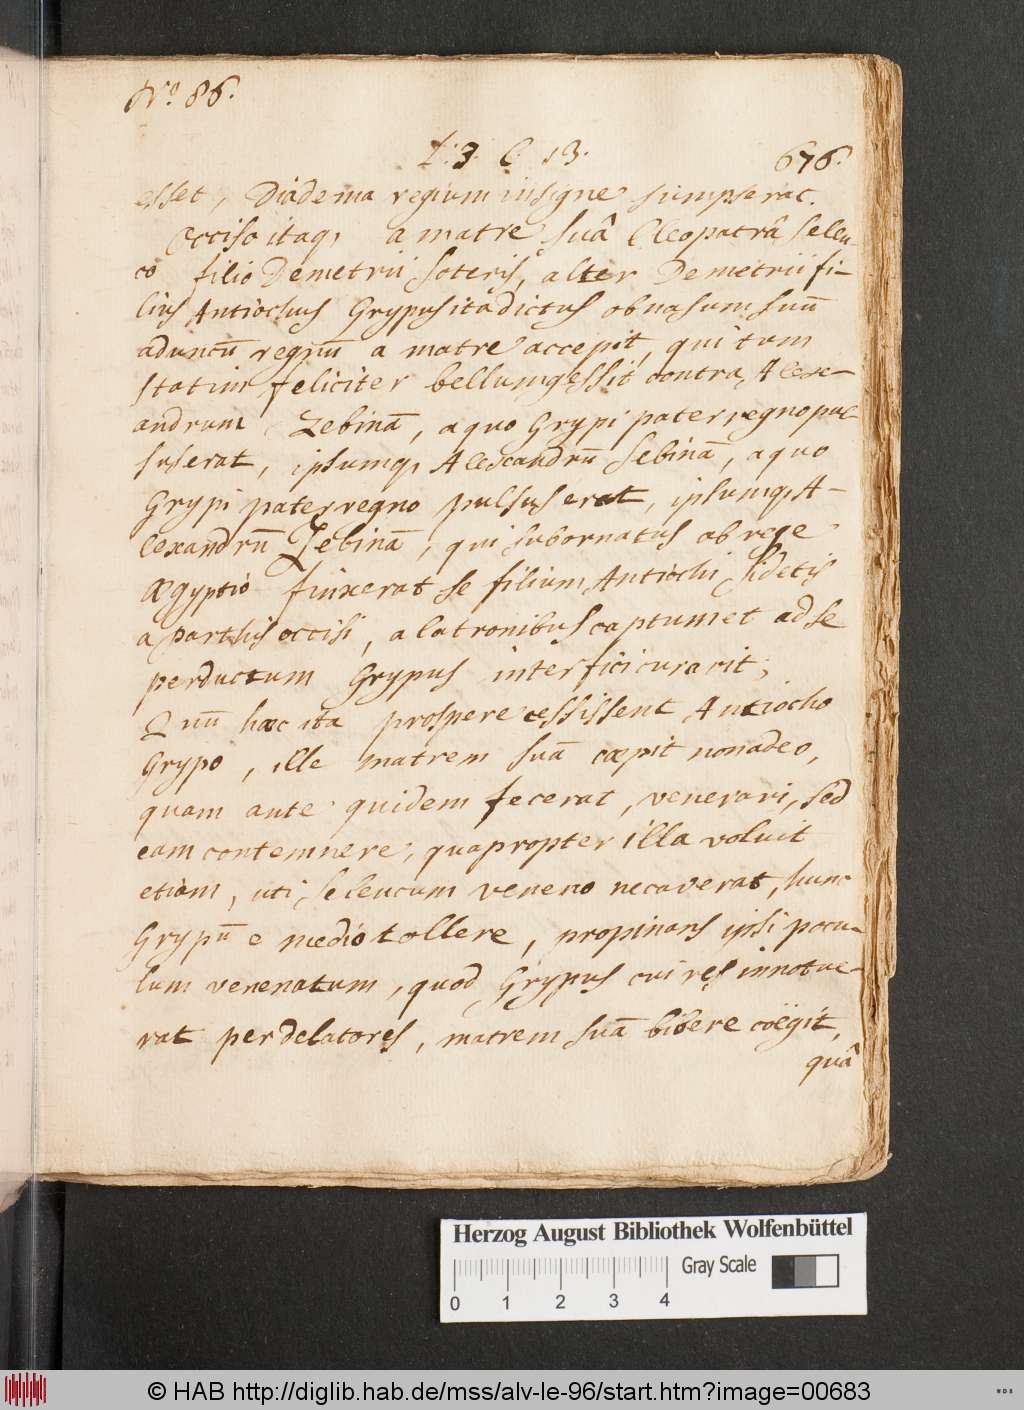 Nº. 86.
L: 3. C. 13.
676.
esset, Diadema regium insigne sumpserat.
Occiso itaq, a matre suâ Cleopatrâ Seleu-
co filio Demetrii Soteris, alter Demetrii fi-
lius Antiochus Grypus ita dictus ob nasum suū
aduncū regnū a matre accepit, qui tum
statim feliciter bellum gessit contra Alex-
andrum Zebinā, a quo Grypi pater regno pul-
sus erat, ipsumq, Alexandrū Sebinā, a quo
Grypi pater regno pulsus erat, ipsumq, A-
lexandrū Zebinā, qui subornatus ab rege
Ægyptio finxerat se filium Antiochi Sidetis
a Parthis occisi, a latronibus captum et ad se
perductum Grypus interfici curarit;
Quū hæc ita prospere cessissent Antiocho
Grypo, ille matrem suā cæpit non adeo,
quam ante quidem fecerat, venerari, sed
eam contemnere, quapropter illa voluit
etiam, uti Seleucum veneno necaverat, hunc
Grypū e medio tollere, propinans ipsi pocu-
lum venenatum, quod Grypus cui res innotue-
rat per delatores, matrem suā bibere coëgit,
quâ
Herzog August Bibliothek Wolfenbüttel
Gray Scale
0 1 2 3 4
© HAB http://diglib.hab.de/mss/alv-le-96/start.htm?image=00683